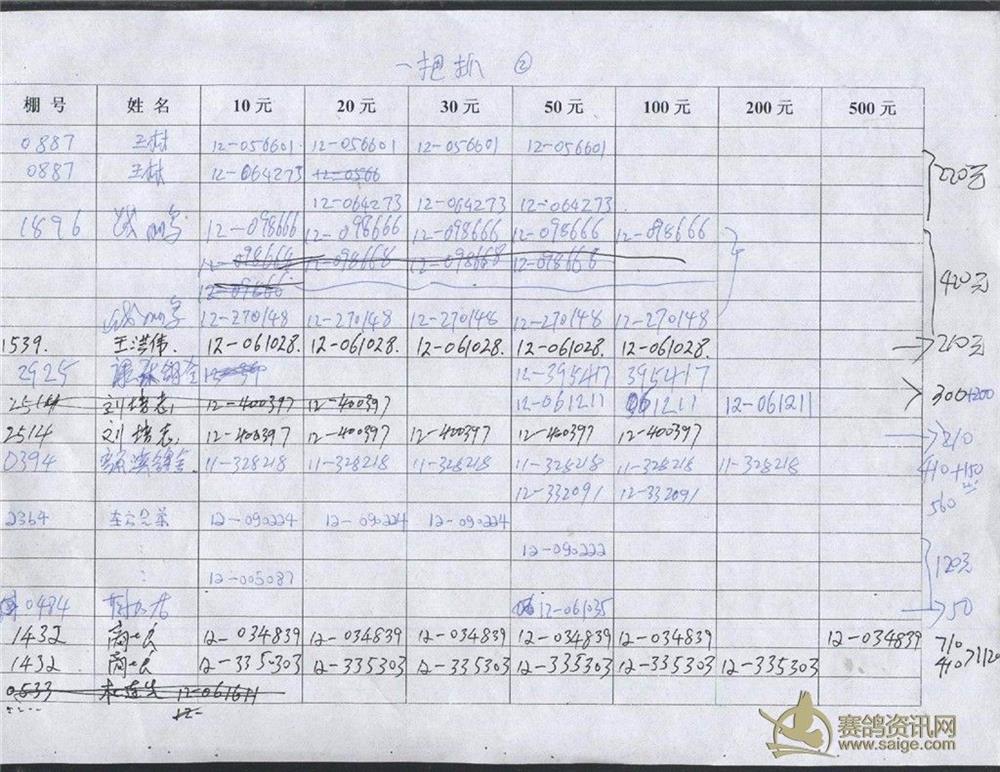 一把抓 ②
棚号 姓名 10元 20元 30元 50元 100元 200元 500元
0887 王林 12-056601 12-056601 12-056601 12-056601
0887 王林 12-064273 12-0566
12-064273 12-064273 12-064273
220元
1896 12-098666 12-098666 12-098666 12-098666 12-098666
12-098668 12-098668
420元
12-270148 12-270148 12-270148 12-270148 12-270148
1539. 王洪伟. 12-061028. 12-061028. 12-061028. 12-061028. 12-061028. 210元
2925 12-395417 395417
300+200
2514 刘培志 12-400397 12-400397 12-061211 061211 12-061211
2514 刘培志 12-400397 12-400397 12-400397 12-400397 12-400397 210
0394 11-328218 11-328218 11-328218 11-328218 11-328218 11-328218 410+150
12-332091 12-332091 560
2364 12-090224 12-090224 12-090224
12-090222
120元
12-005087
0494 12-061035 50
1432 12-034839 12-034839 12-034839 12-034839 12-034839 12-034839 710
1432 12-335303 12-335303 12-335303 12-335303 12-335303 12-335303 410 >1120
0533 12-061611
12-
赛鸽资讯网
www.saige.com